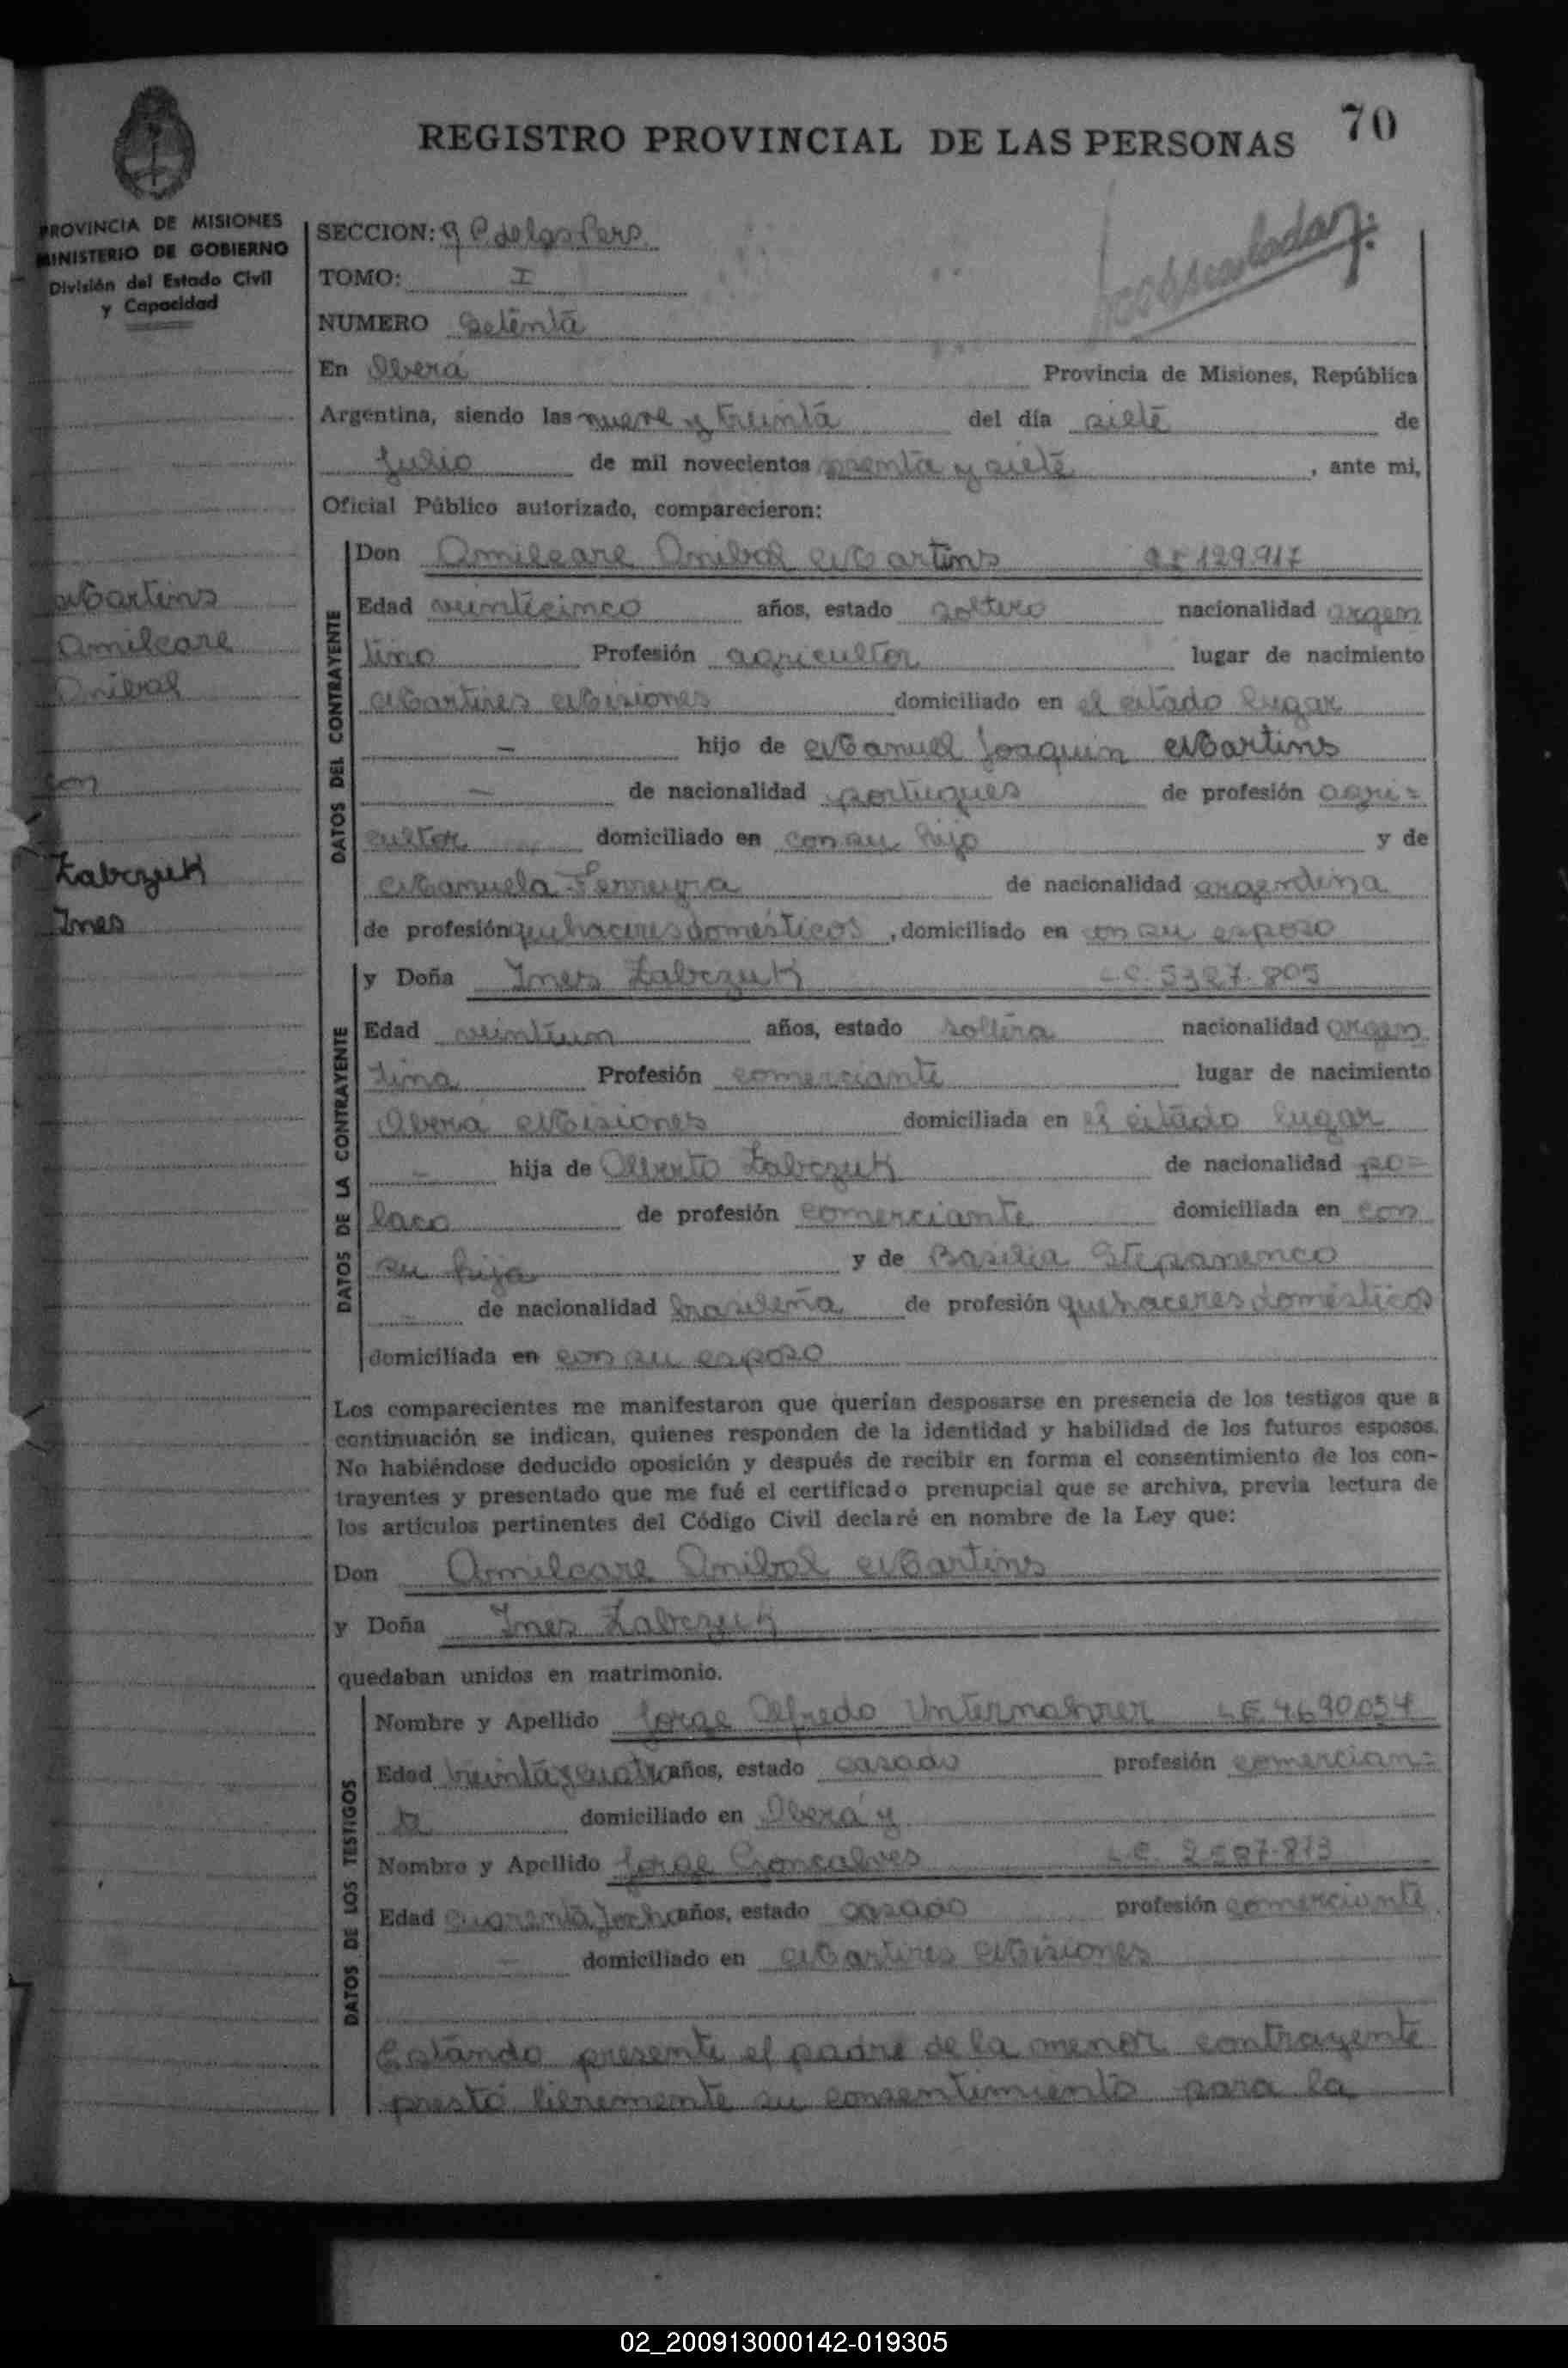 70
REGISTRO PROVINCIAL DE LAS PERSONAS
PROVINCIA DE MISIONES
MINISTERIO DE GOBIERNO
División del Estado Civil
y Capacidad
Martins
Amilcare
Anibal
con
Zabczuk
Ines
SECCION: R P de las Pers
TOMO: I
NUMERO Setenta
En Oberá Provincia de Misiones, República
Argentina, siendo las nueve y treinta del día siete de
Julio de mil novecientos senta y siete, ante mi,
Oficial Público autorizado, comparecieron:
DATOS DEL CONTRAYENTE
Don Amilcare Anibal Martins 129.917
Edad veinticinco años, estado soltero nacionalidad argen
tino Profesión agricultor lugar de nacimiento
Martires Misiones domiciliado en el citado lugar
— hijo de Manuel Joaquin Martins
— de nacionalidad portugues de profesión agri=
cultor domiciliado en con su hijo y de
Manuela Ferreyra de nacionalidad argentina
de profesión quehaceres domésticos, domiciliado en con su esposo
DATOS DE LA CONTRAYENTE
y Doña Ines Zabczuk L.C. 5327.805
Edad veintiun años, estado soltera nacionalidad argen
tina Profesión comerciante lugar de nacimiento
Oberá Misiones domiciliada en el citado lugar
— hija de Alberto Zabczuk de nacionalidad po=
laco de profesión comerciante domiciliada en con
su hija y de Basilia Stepanenco
— de nacionalidad brasileña de profesión quehaceres domésticos
domiciliada en con su esposo
Los comparecientes me manifestaron que querían desposarse en presencia de los testigos que a
continuación se indican, quienes responden de la identidad y habilidad de los futuros esposos.
No habiéndose deducido oposición y después de recibir en forma el consentimiento de los con-
trayentes y presentado que me fué el certificado prenupcial que se archiva, previa lectura de
los artículos pertinentes del Código Civil declaré en nombre de la Ley que:
Don Amilcare Anibal Martins
y Doña Ines Zabczuk
quedaban unidos en matrimonio.
DATOS DE LOS TESTIGOS
Nombre y Apellido Jorge Alfredo Unternahrer L E 4690.054
Edad treinta y cuatro años, estado casado profesión comercian=
te domiciliado en Oberá y
Nombre y Apellido Jorge Goncalves L.E.
Edad cuarenta y ocho años, estado casado profesión comerciante
— domiciliado en Martires Misiones
Estando presente el padre de la menor contrayente
prestó libremente su consentimiento para la
02_200913000142-019305